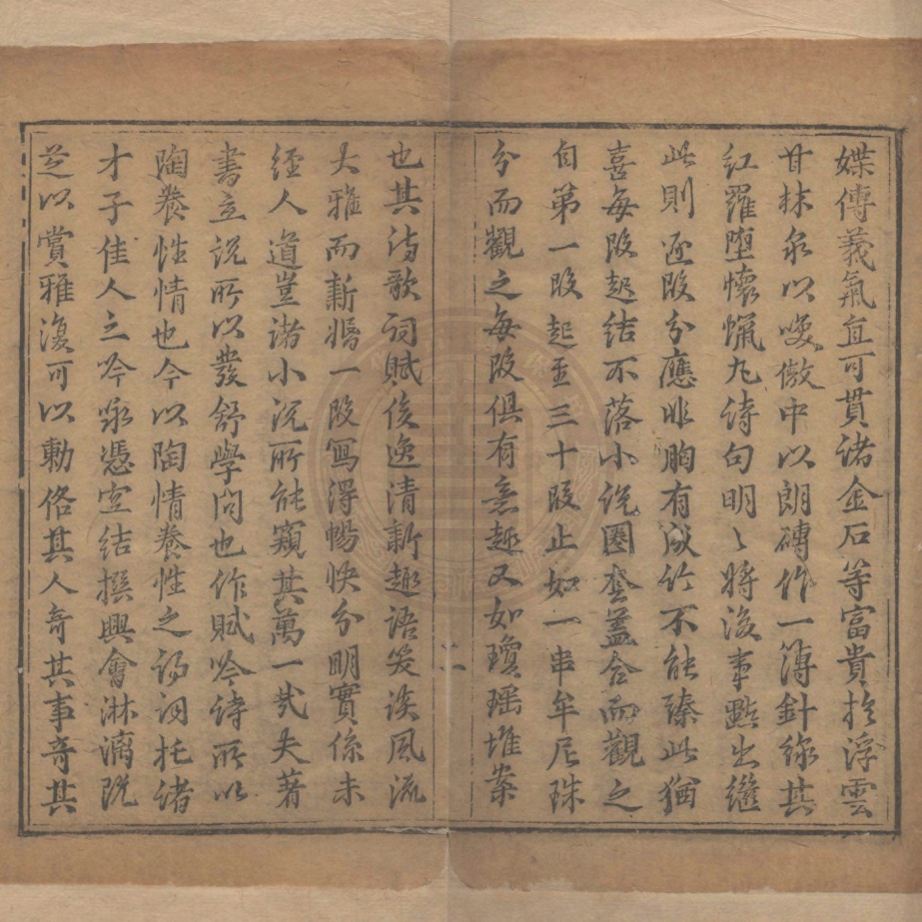 媒傳義氣直可貫諸金石等富貴扵浮雲
甘林泉以嘐傲中以朗磚作一簿針線其
紅羅墮懷蝋丸诗句明〻將後事㸃出継
此則逐段分應非胸有成竹不能臻此猶
喜每段起结不落小説圈套盖合而觀之
自第一段起至三十段止如一串牟尼珠
分而觀之每段俱有意趣又如瓊瑶堆案
也其詩歌词賦俊逸清新趣语笑谈風流
大雅而新婚一段寫得暢快分明實係未
經人道豈诸小説所能窺其萬一㢤夫著
書立説所以發舒學问也作賦吟诗所以
陶養性情也今以陶情養性之诗词托诸
才子佳人之吟咏憑空结撰興會淋漓既
足以賞雅復可以動俗其人奇其事奇其
二